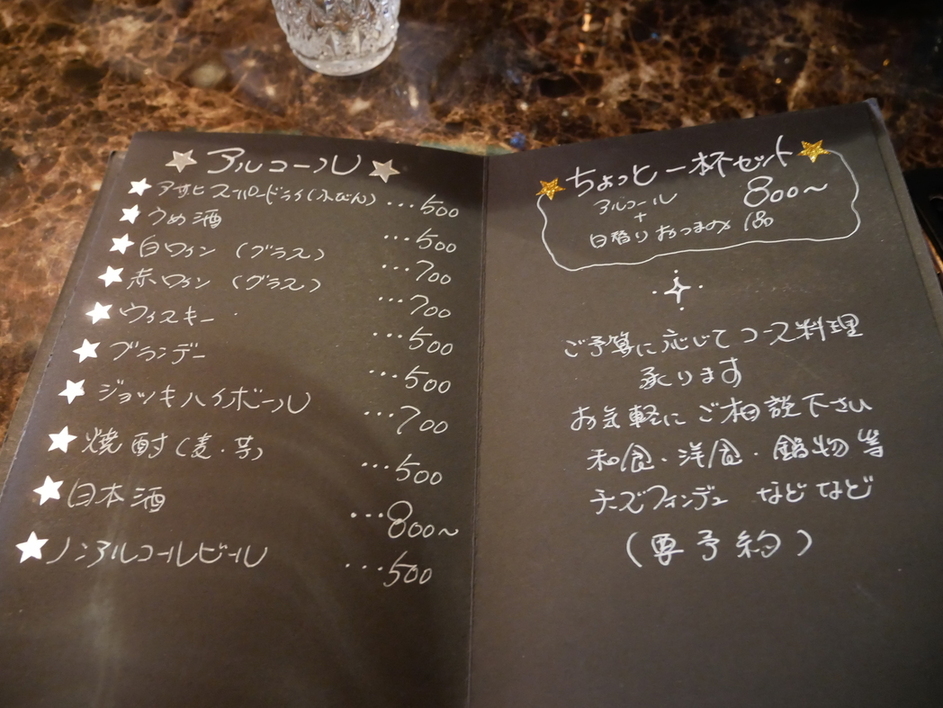 アルコール
アサヒスーパードライ(小びん) …500
うめ酒 …500
白ワイン (グラス) …700
赤ワイン (グラス) …700
ウィスキー …500
ブランデー …500
ジョッキハイボール …700
焼酎(麦・芋) …500
日本酒 …800~
ノンアルコールビール …500
ちょっと一杯セット
アルコール 800~
+
日替りおつまみ1品
ご予算に応じてコース料理
承ります
お気軽にご相談下さい
和食・洋食・鍋物等
チーズフォンデュ などなど
(要予約)